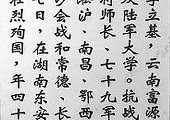 字立基，云南富源
入陆军大学。抗战
师长、七十九军
淞沪、南昌、鄂西
会战和常德、长
七日，在湖南东安
壮烈殉国，年四十